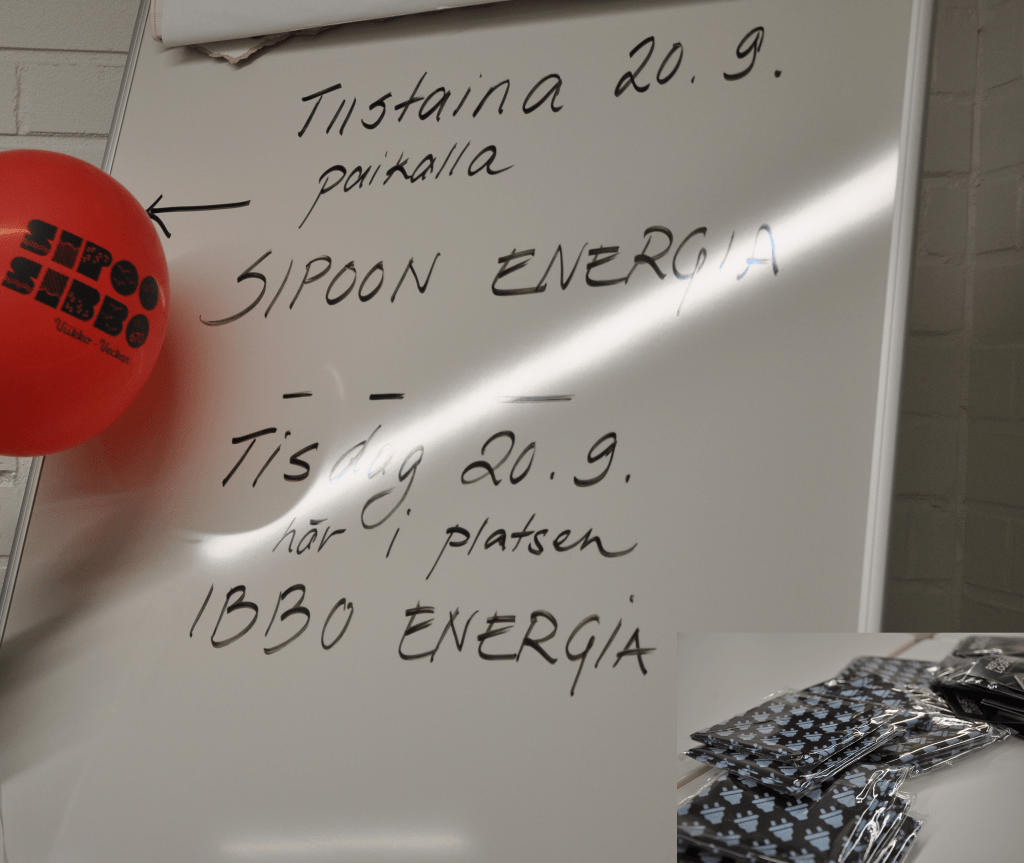 Tiistaina 20.9.
paikalla
SIPOON ENERGIA
Tisdag 20.9.
här i platsen
IBBO ENERGIA
SIPOO
SIBBO
Viikko - Veckan